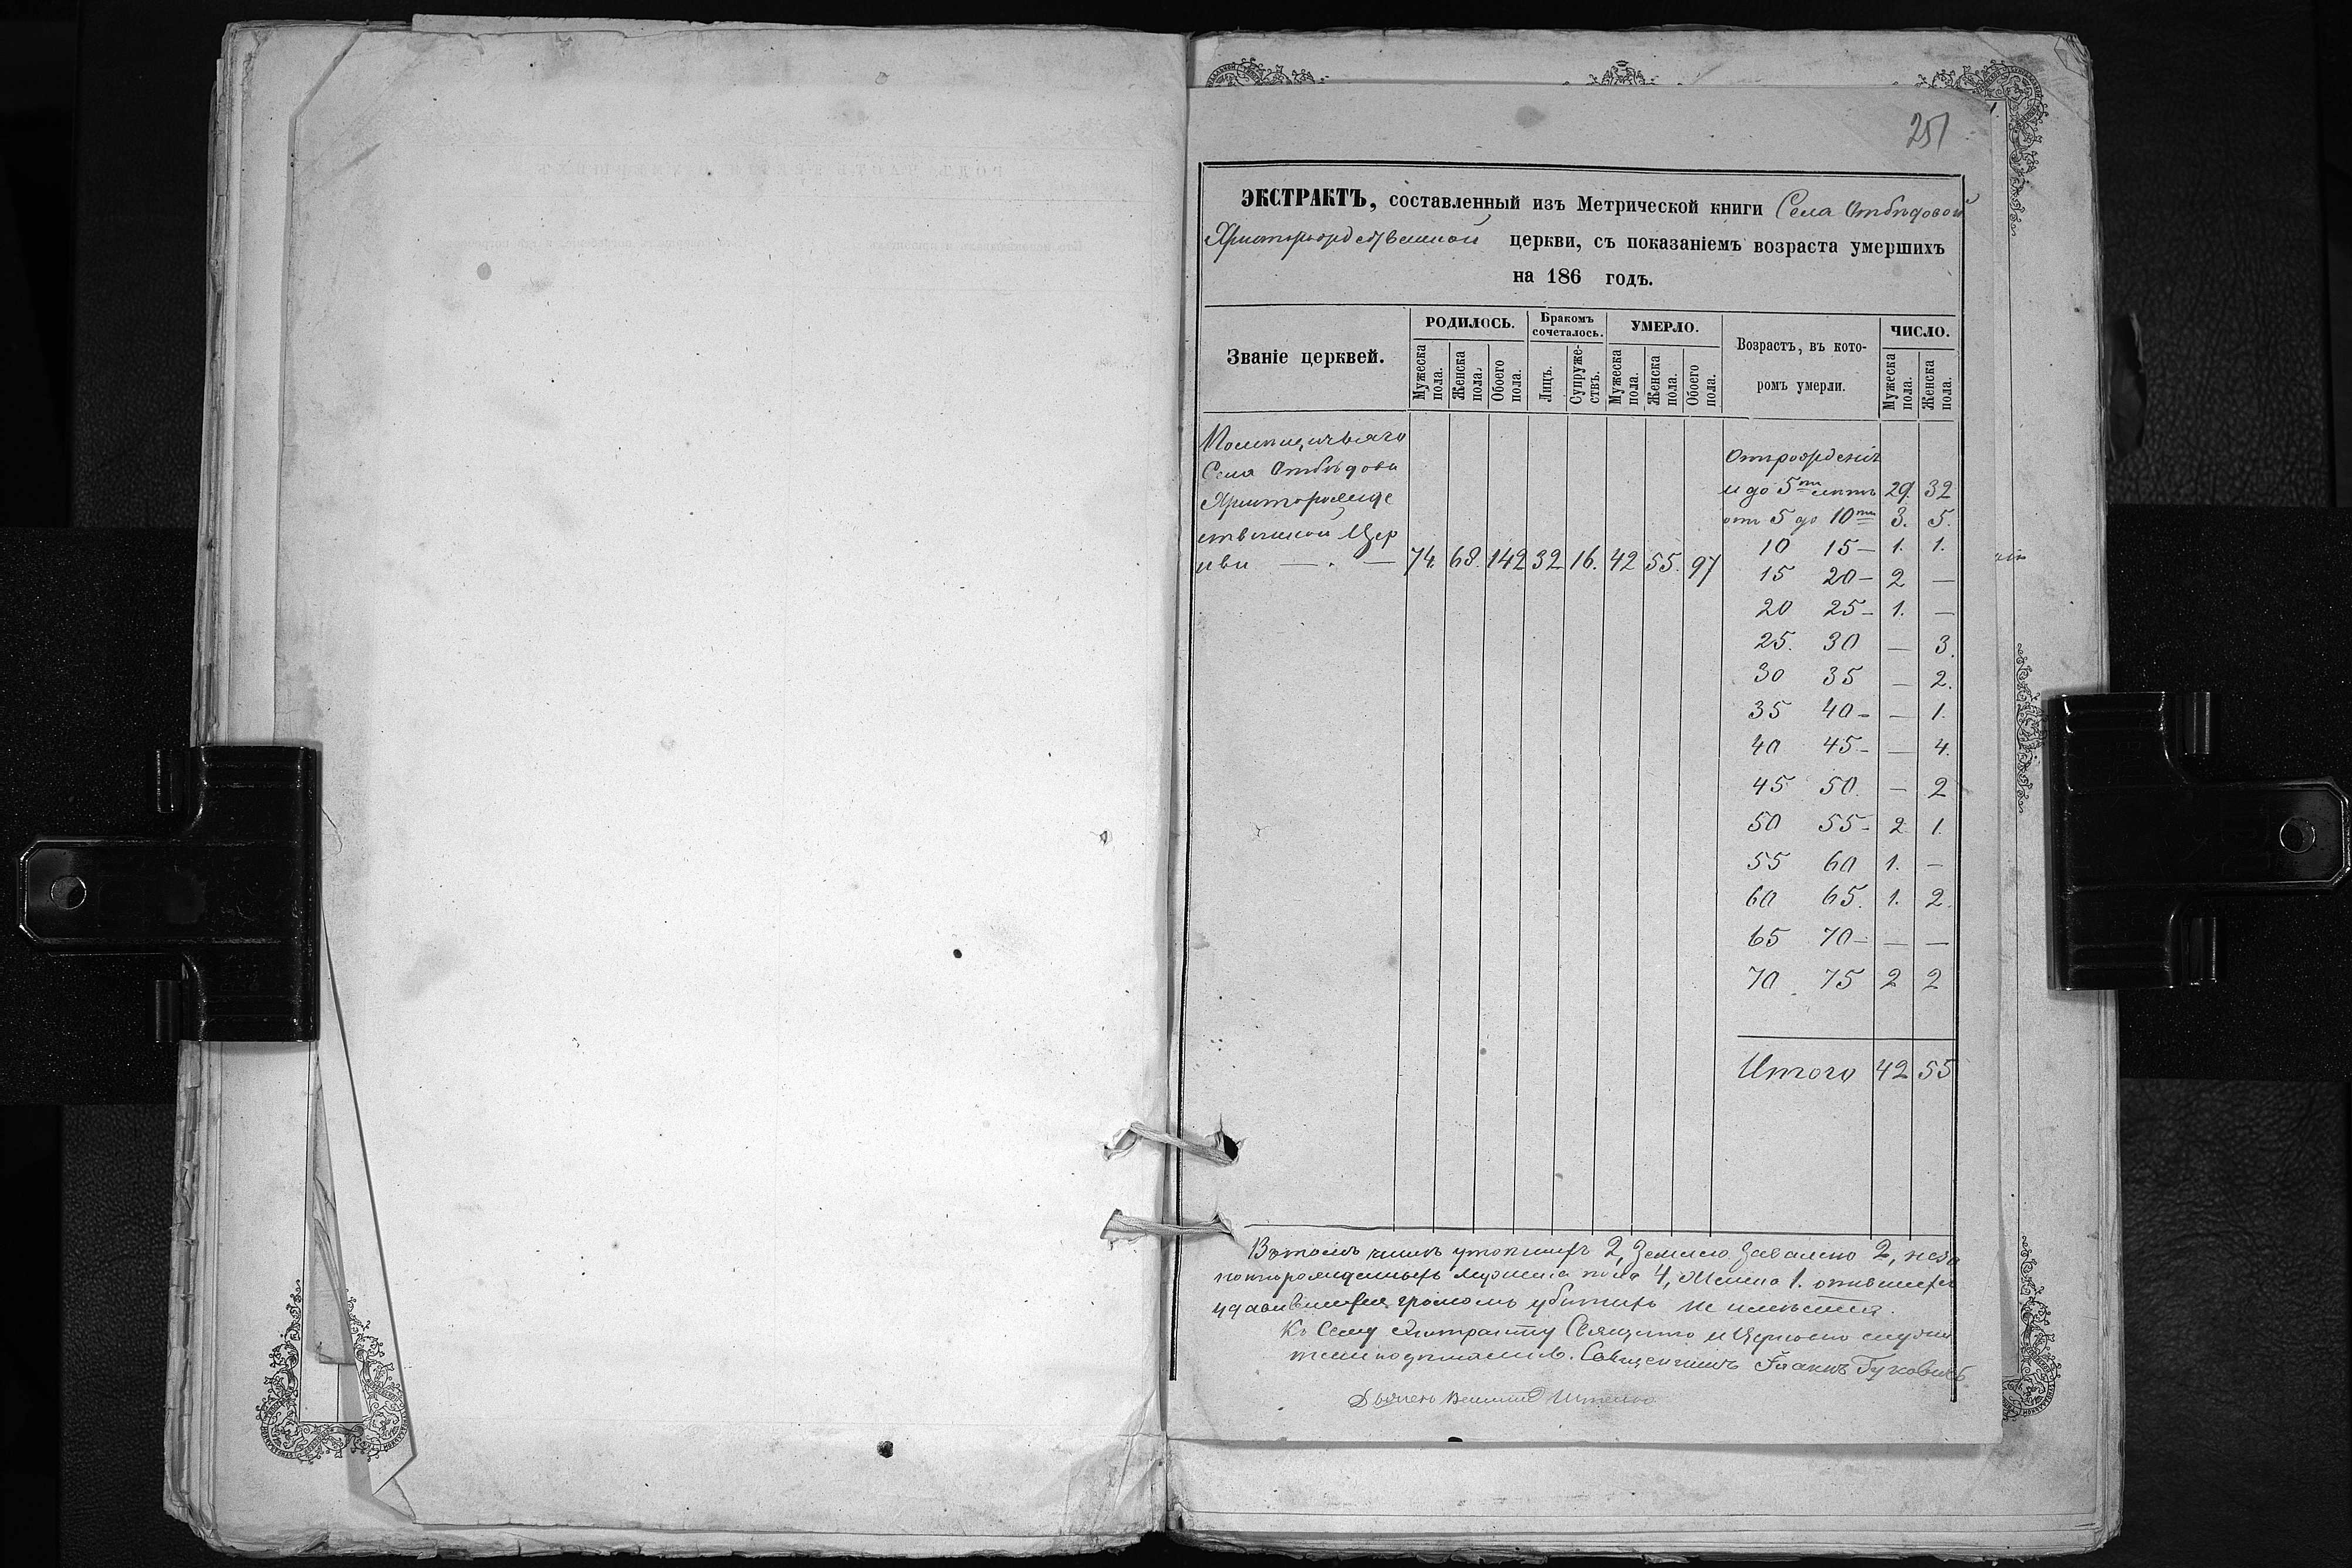 251
ЭКСТРАКТЪ, составленный изъ Метрической книги Села Отбѣдовой
Христорождественной церкви, съ показаніемъ возраста умершихъ
на 186 годъ.
Званіе церквей.
РОДИЛОСЬ.
Мужеска пола.
Женска пола.
Обоего пола.
Бракомъ сочеталось.
Лицъ.
Супружествъ.
УМЕРЛО.
Мужеска пола.
Женска пола.
Обоего пола.
Возрастъ, въ кото-
ромъ умерли.
ЧИСЛО.
Мужеска пола.
Женска пола.
Помѣщичьяго
Села Отбѣдови
Христорожде
ственной Цер
кви — . — 74. 68. 142 32 16. 42 55. 97
Отрожденія
и до 5ти лѣтъ 29. 32
отъ 5 до 10ти 3. 5.
10 15 — 1. 1.
15 20 – 2 —
20 25 – 1. —
25. 30 — 3.
30 35 — 2.
35 40 – — 1.
40 45 – — 4.
45 50. — 2
50 55 – 2. 1.
55 60 1. —
60 65. 1. 2.
65 70 – — —
70 75 2 2
Итого 42 55
Въ томъ числѣ утопшихъ 2, Землею завалено 2, неза
коннорожденныхъ мужеска пола 4, Женска 1. опившихся
удавившихся громомъ убитыхъ не имѣется.
Къ Сему Экстракту Священно и Церковно служи
тели подписались. Священникъ Гуковичъ